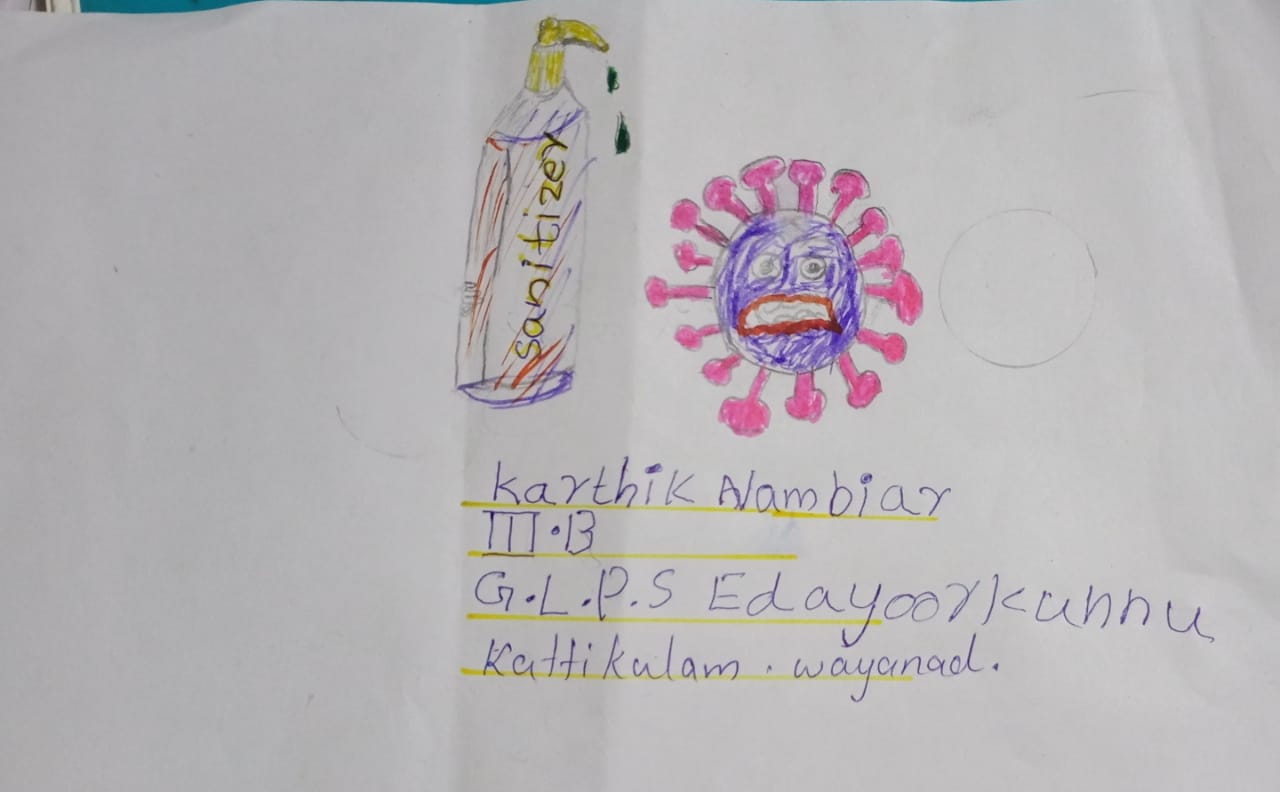 sanitizer
Karthik Nambiar
III.B
G.L.P.S Edayoorkunnu
Kattikulam. wayanad.